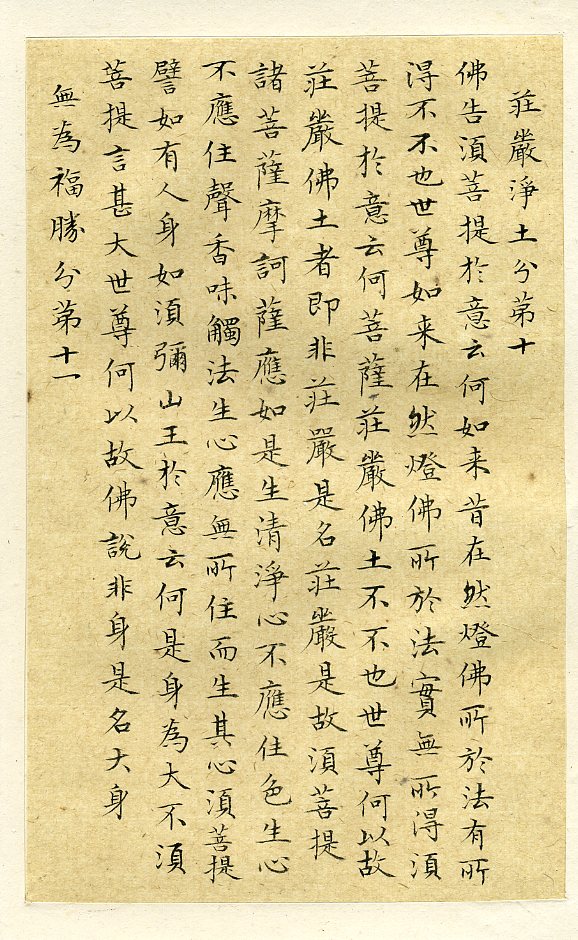 莊嚴淨土分第十
佛告須菩提於意云何如来昔在然燈佛所於法有所
得不不也世尊如来在然燈佛所於法實無所得須
菩提於意云何菩薩莊嚴佛土不不也世尊何以故
莊嚴佛土者即非莊嚴是名莊嚴是故須菩提
諸菩薩摩訶薩應如是生清淨心不應住色生心
不應住聲香味觸法生心應無所住而生其心須菩提
譬如有人身如須彌山王於意云何是身為大不須
菩提言甚大世尊何以故佛說非身是名大身
無為福勝分第十一